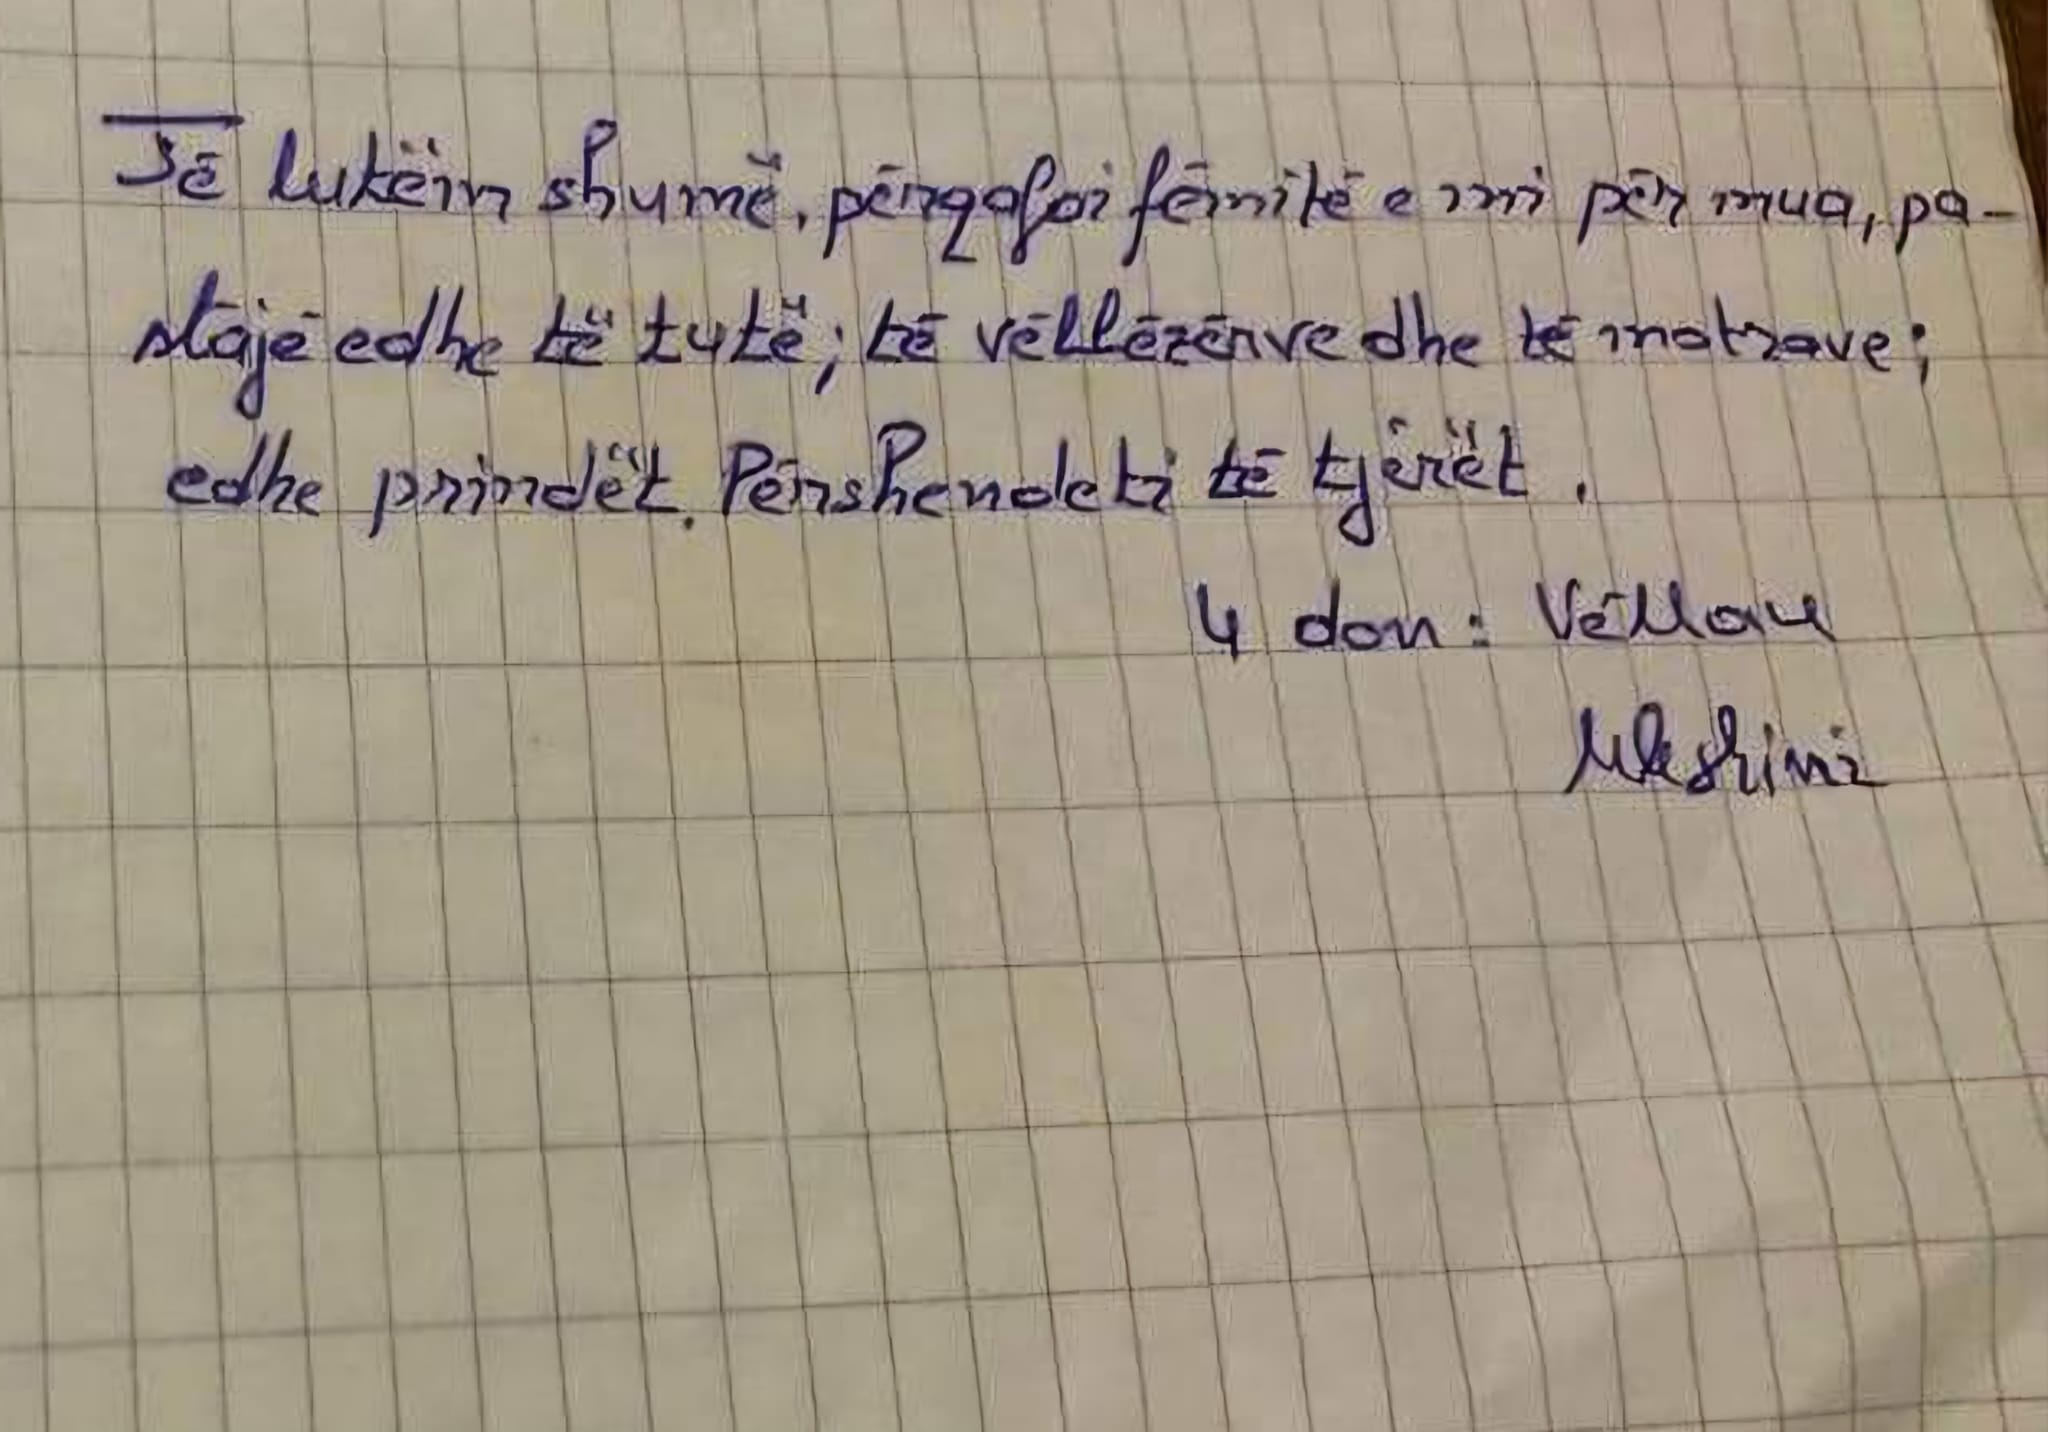 Të lutëm shumë, përqafoi fëmitë e mi për mua, pa-
stajë edhe të tutë; të vëllëzërve dhe të motrave;
edhe prindët. Përshendeti të tjerët.
U don: Vëllau